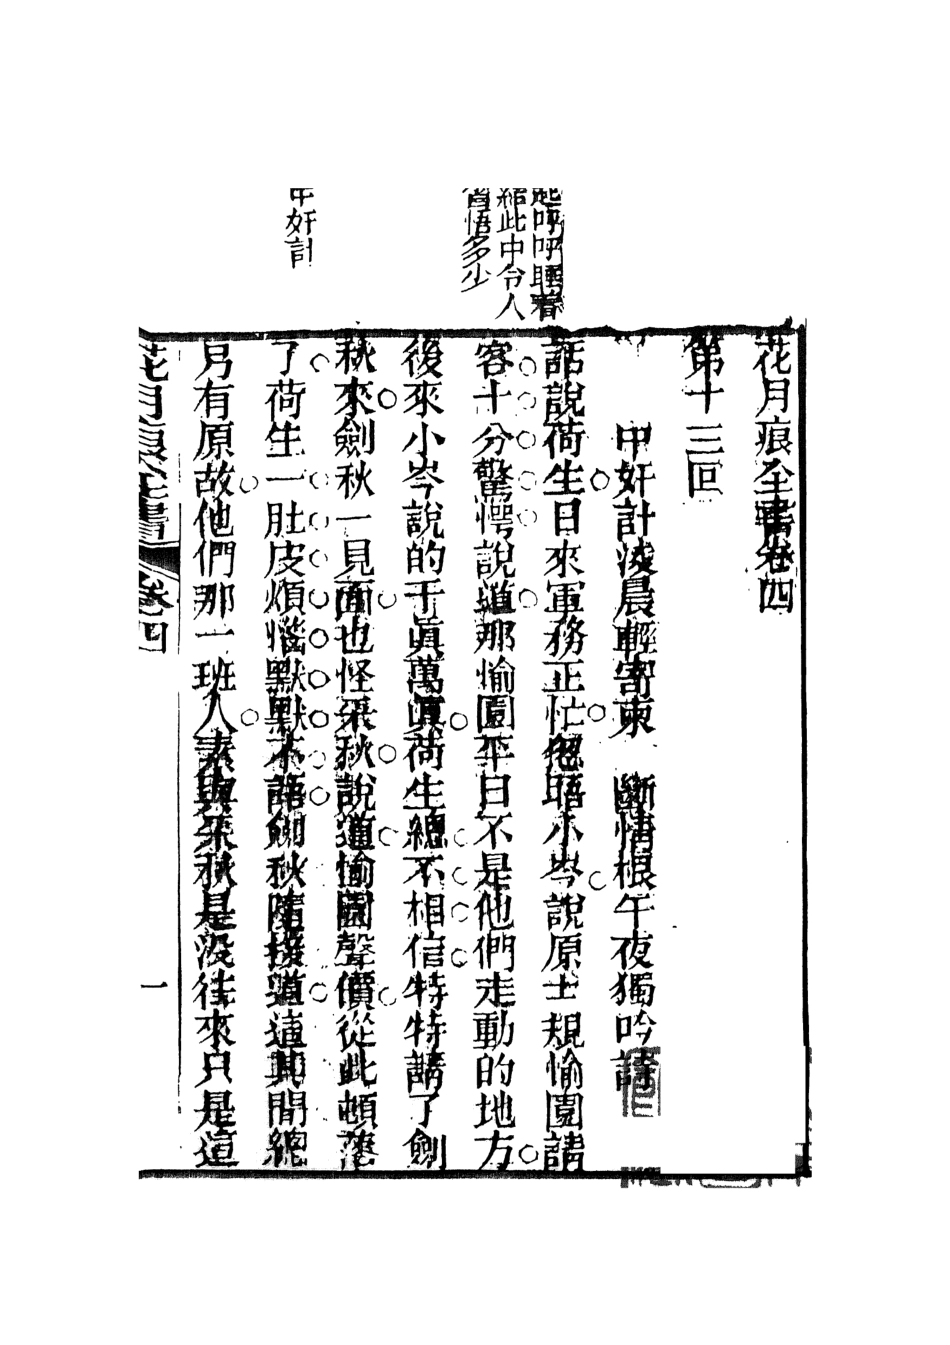 花月痕全書卷四
第十三回
中奸計淩晨輕寄柬　斷情根午夜獨吟詩
話說荷生日來軍務正忙忽晤小岑說原士規愉園請
客十分驚愕說道那愉園平日不是他們走動的地方
後來小岑說的千眞萬眞荷生總不相信特特請了劍
秋來劍秋一見面也怪采秋說道愉園聲價從此頓落
了荷生一肚皮煩惱默默不語劍秋隨接道這其間總
另有原故他們那一班人素與采秋是沒往來只是這
此中令人
省悟多少
中奸計
花月痕全書
卷四
一